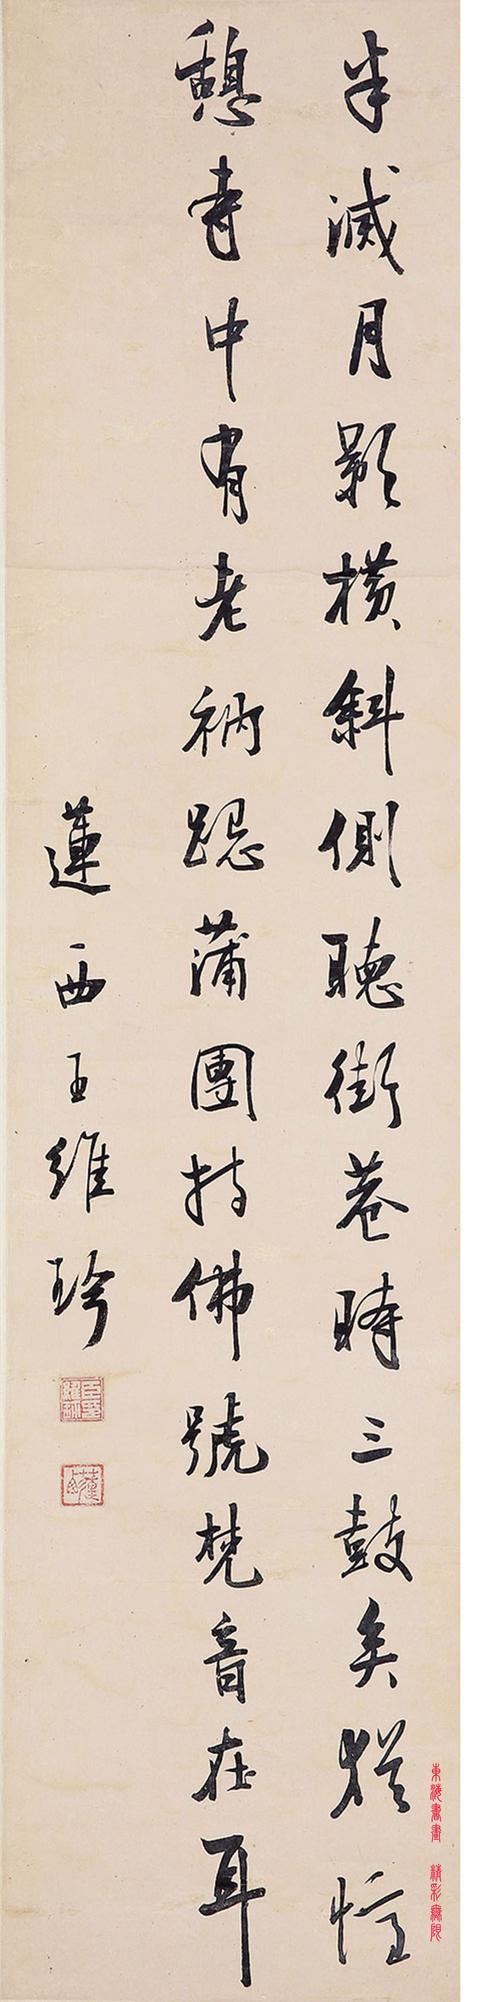 半滅月影橫斜側聽街巷時三鼓矣猶憶
憩寺中有老衲踞蒲團持佛號梵音在耳
蓮西王維珍
東海書畫 精彩無限